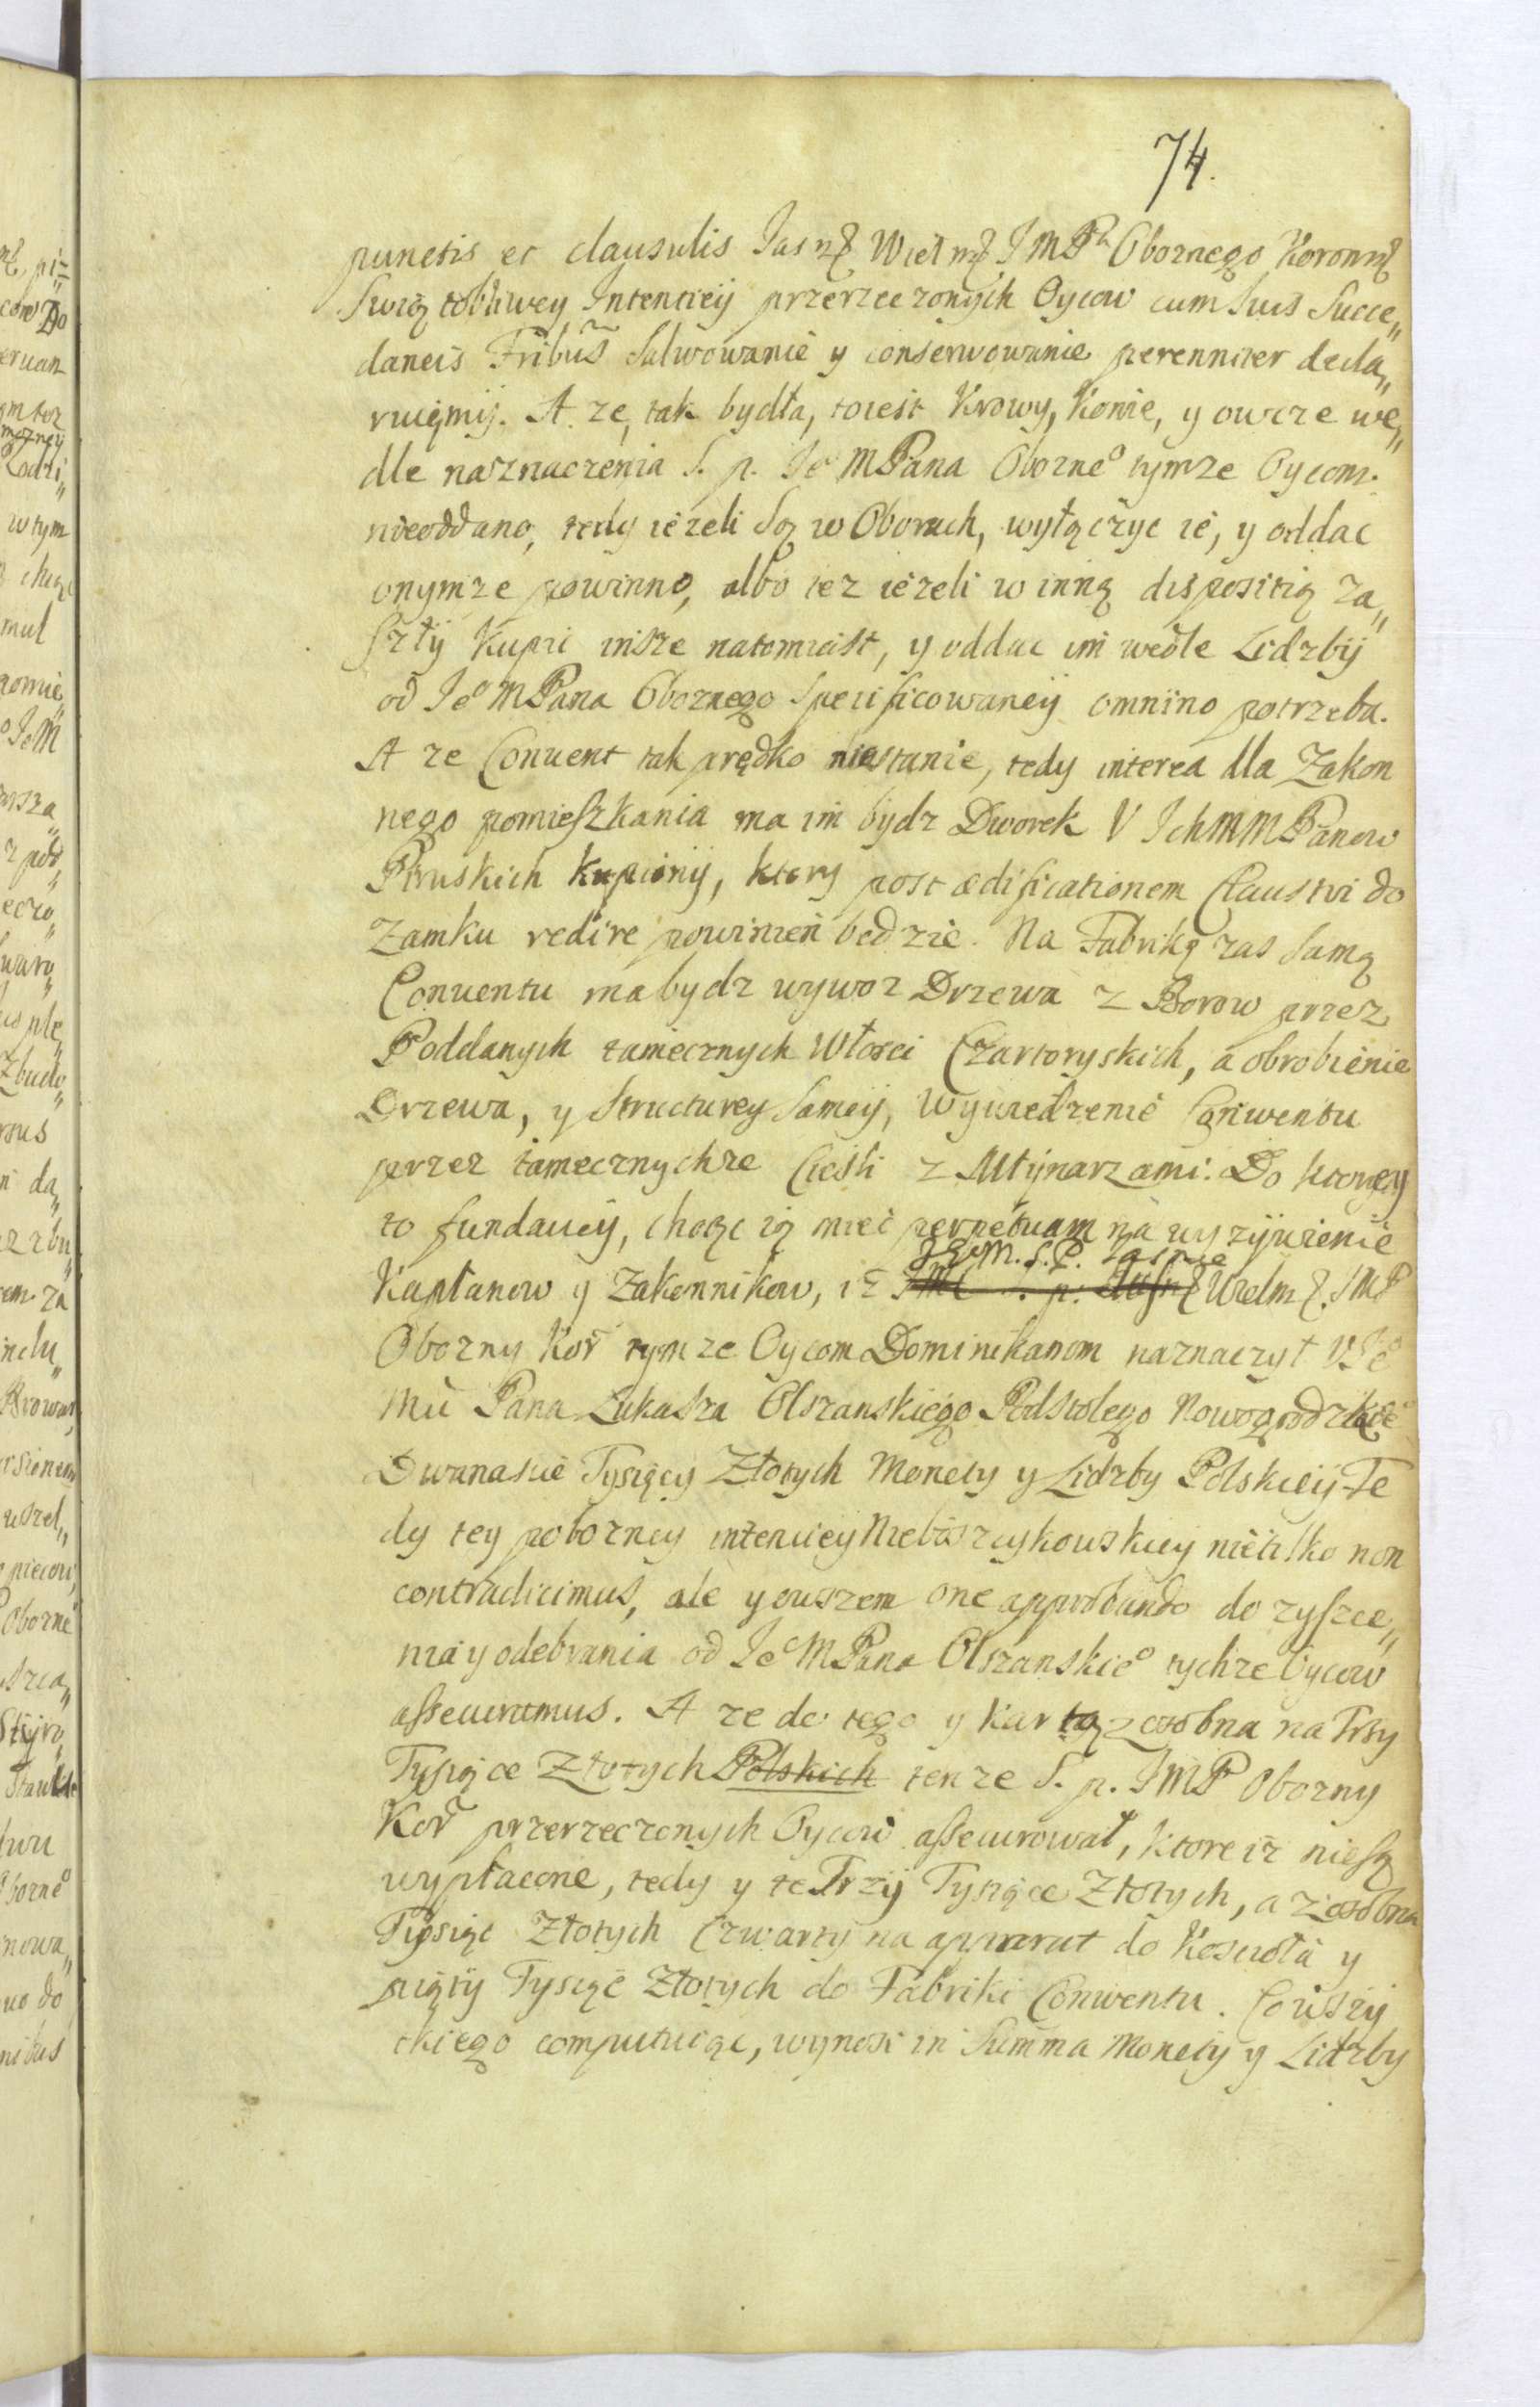 74.
punctis et clausulis Jasnę Wielmę JMPa Oboznego Koronnę
Swiątobliwey Intentieij przerzeczonych Oycow cum Suis Succe„
daneis Fribūs Salwowanie y conserwowanie perenniter decla„
ruięmij. A ze, tak bydła, toiest Krowy, Konie, y owcze we„
dle naznaczenia S. p. Je MPana Obozneº tymze Oycom
nieoddano, tedy iezeli Są w Oborach, wyłączyc ie, y oddac
onymze powinno, albo tez iezeli w inną dispositią za„
szły Kupic insze natomiast, y oddac im wedle Lidzbij
od Jeº MPana Oboznego Specificowaneij omnino potrzeba.
A ze Conuent tak prędko niestanie, tedy interea dla Zakon
nego pomieszkania ma im bydz Dworek V IchMMPanow
Pruskich kupionij, ktory post ædificationem Claustri do
Zamku redire powinien bedzie. Na Fabrikę zas Samą
Conuentu ma bydz wywoz Drzewa z Borow przez
Poddanych tamecznych Włosci Czartoryskich, a obrobienie
Drzewa, y Structurey Sameij, Wywiedzenie Conwentu
przez tamecznychze Ciesli z Młijnarzami. Do ktorey
to fundaciey, chcąc ią miec perpetuam na wyzijwienie
JeoM. S. P. Jasnie
Kapłanow y Zakonnikow, iz JMC S. p. Jasnę Wielmę. JMP
Obozny Kor tymze Oycom Dominikanom naznaczył V Jeº
Mci Pana Łukasza Olszanskiego Podstolego Nowogrodzkieº
Dwanascie Tysięcy Złotych Monety y Lidzby Polskieij Te
dy tey poborney intenciey Nieboszczykowskiey nietilko non
contradicimus, ale y owszem one approbando do zysce„
nia y odebrania od Jeº MPana Olszanskieº tychze Oycow
assecuramus. A ze do tego y Kartą zosobna na Trzy
Tysiące Złotych Polskich tenze S. p. JMP Obozny
Kor przerzeczonych Oycow assecurował, ktore iz niesą
wypłacone, tedy y te Trzij Tysiące Złotych, a zosobna
Tijsiąc Złotych Czwarty na apparat do Kosciołá y
piątÿ Tysiąc Złotych do Fabriki Conwentu. Co wszy
tkiego computuiąc, wynosi in Summa Monety y Lidzby